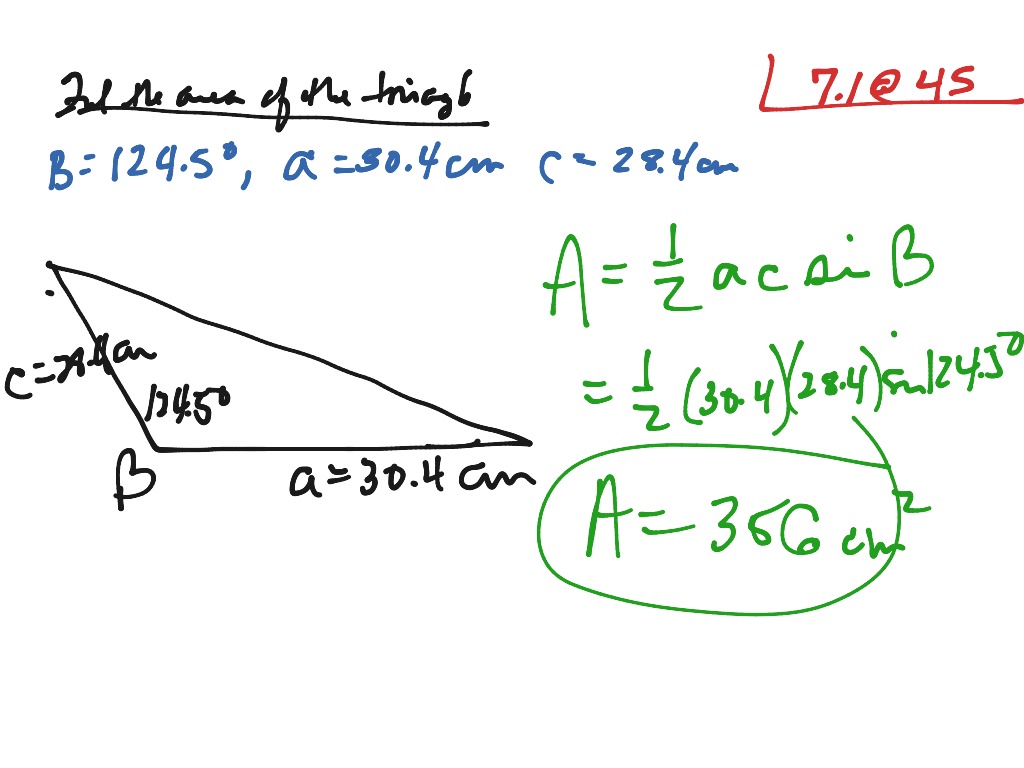 Find the area of the triangle
7.1 @ 45
B = 124.5°, a = 30.4 cm c = 28.4 cm
A = 1/2 a c sin B
c = 28.4 cm
124.5°
= 1/2 (30.4)(28.4) sin 124.5°
B
a = 30.4 cm
A = 356 cm²